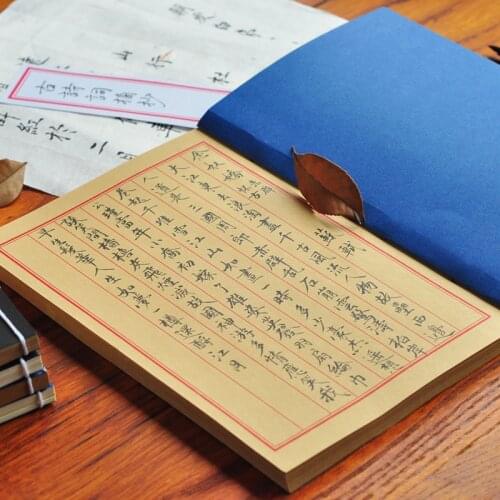 古詩詞摘抄
山行 杜
紅於二月
念奴嬌 赤壁懷古 蘇軾
大江東去浪淘盡千古風流人物故壘西邊
人道是三國周郎赤壁亂石崩雲驚濤拍岸
卷起千堆雪江山如畫一時多少豪杰遙想公
瑾當年小喬初嫁了雄姿英發羽扇綸巾
談笑間檣櫓灰飛煙滅故國神游多情應笑我
早生華髮人生如夢一樽還酹江月